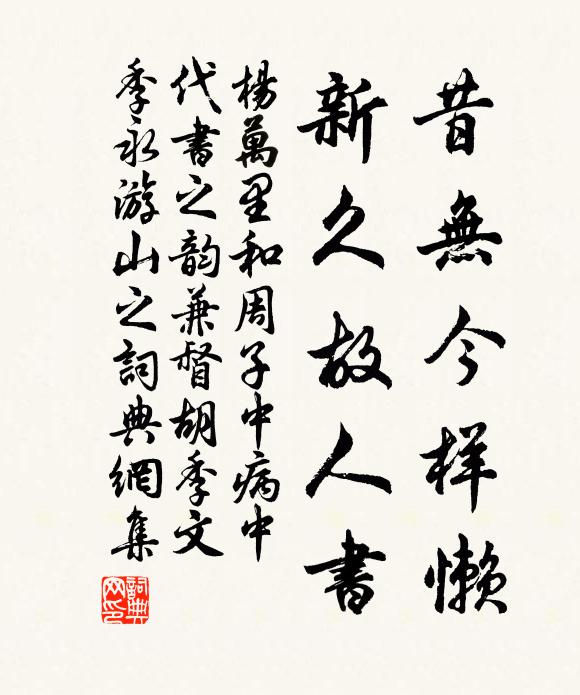 昔無今样懒
新久故人書
楊萬里和周子中病中
代書之韵兼督胡季文
季永游山之詞典網集
詞典網印